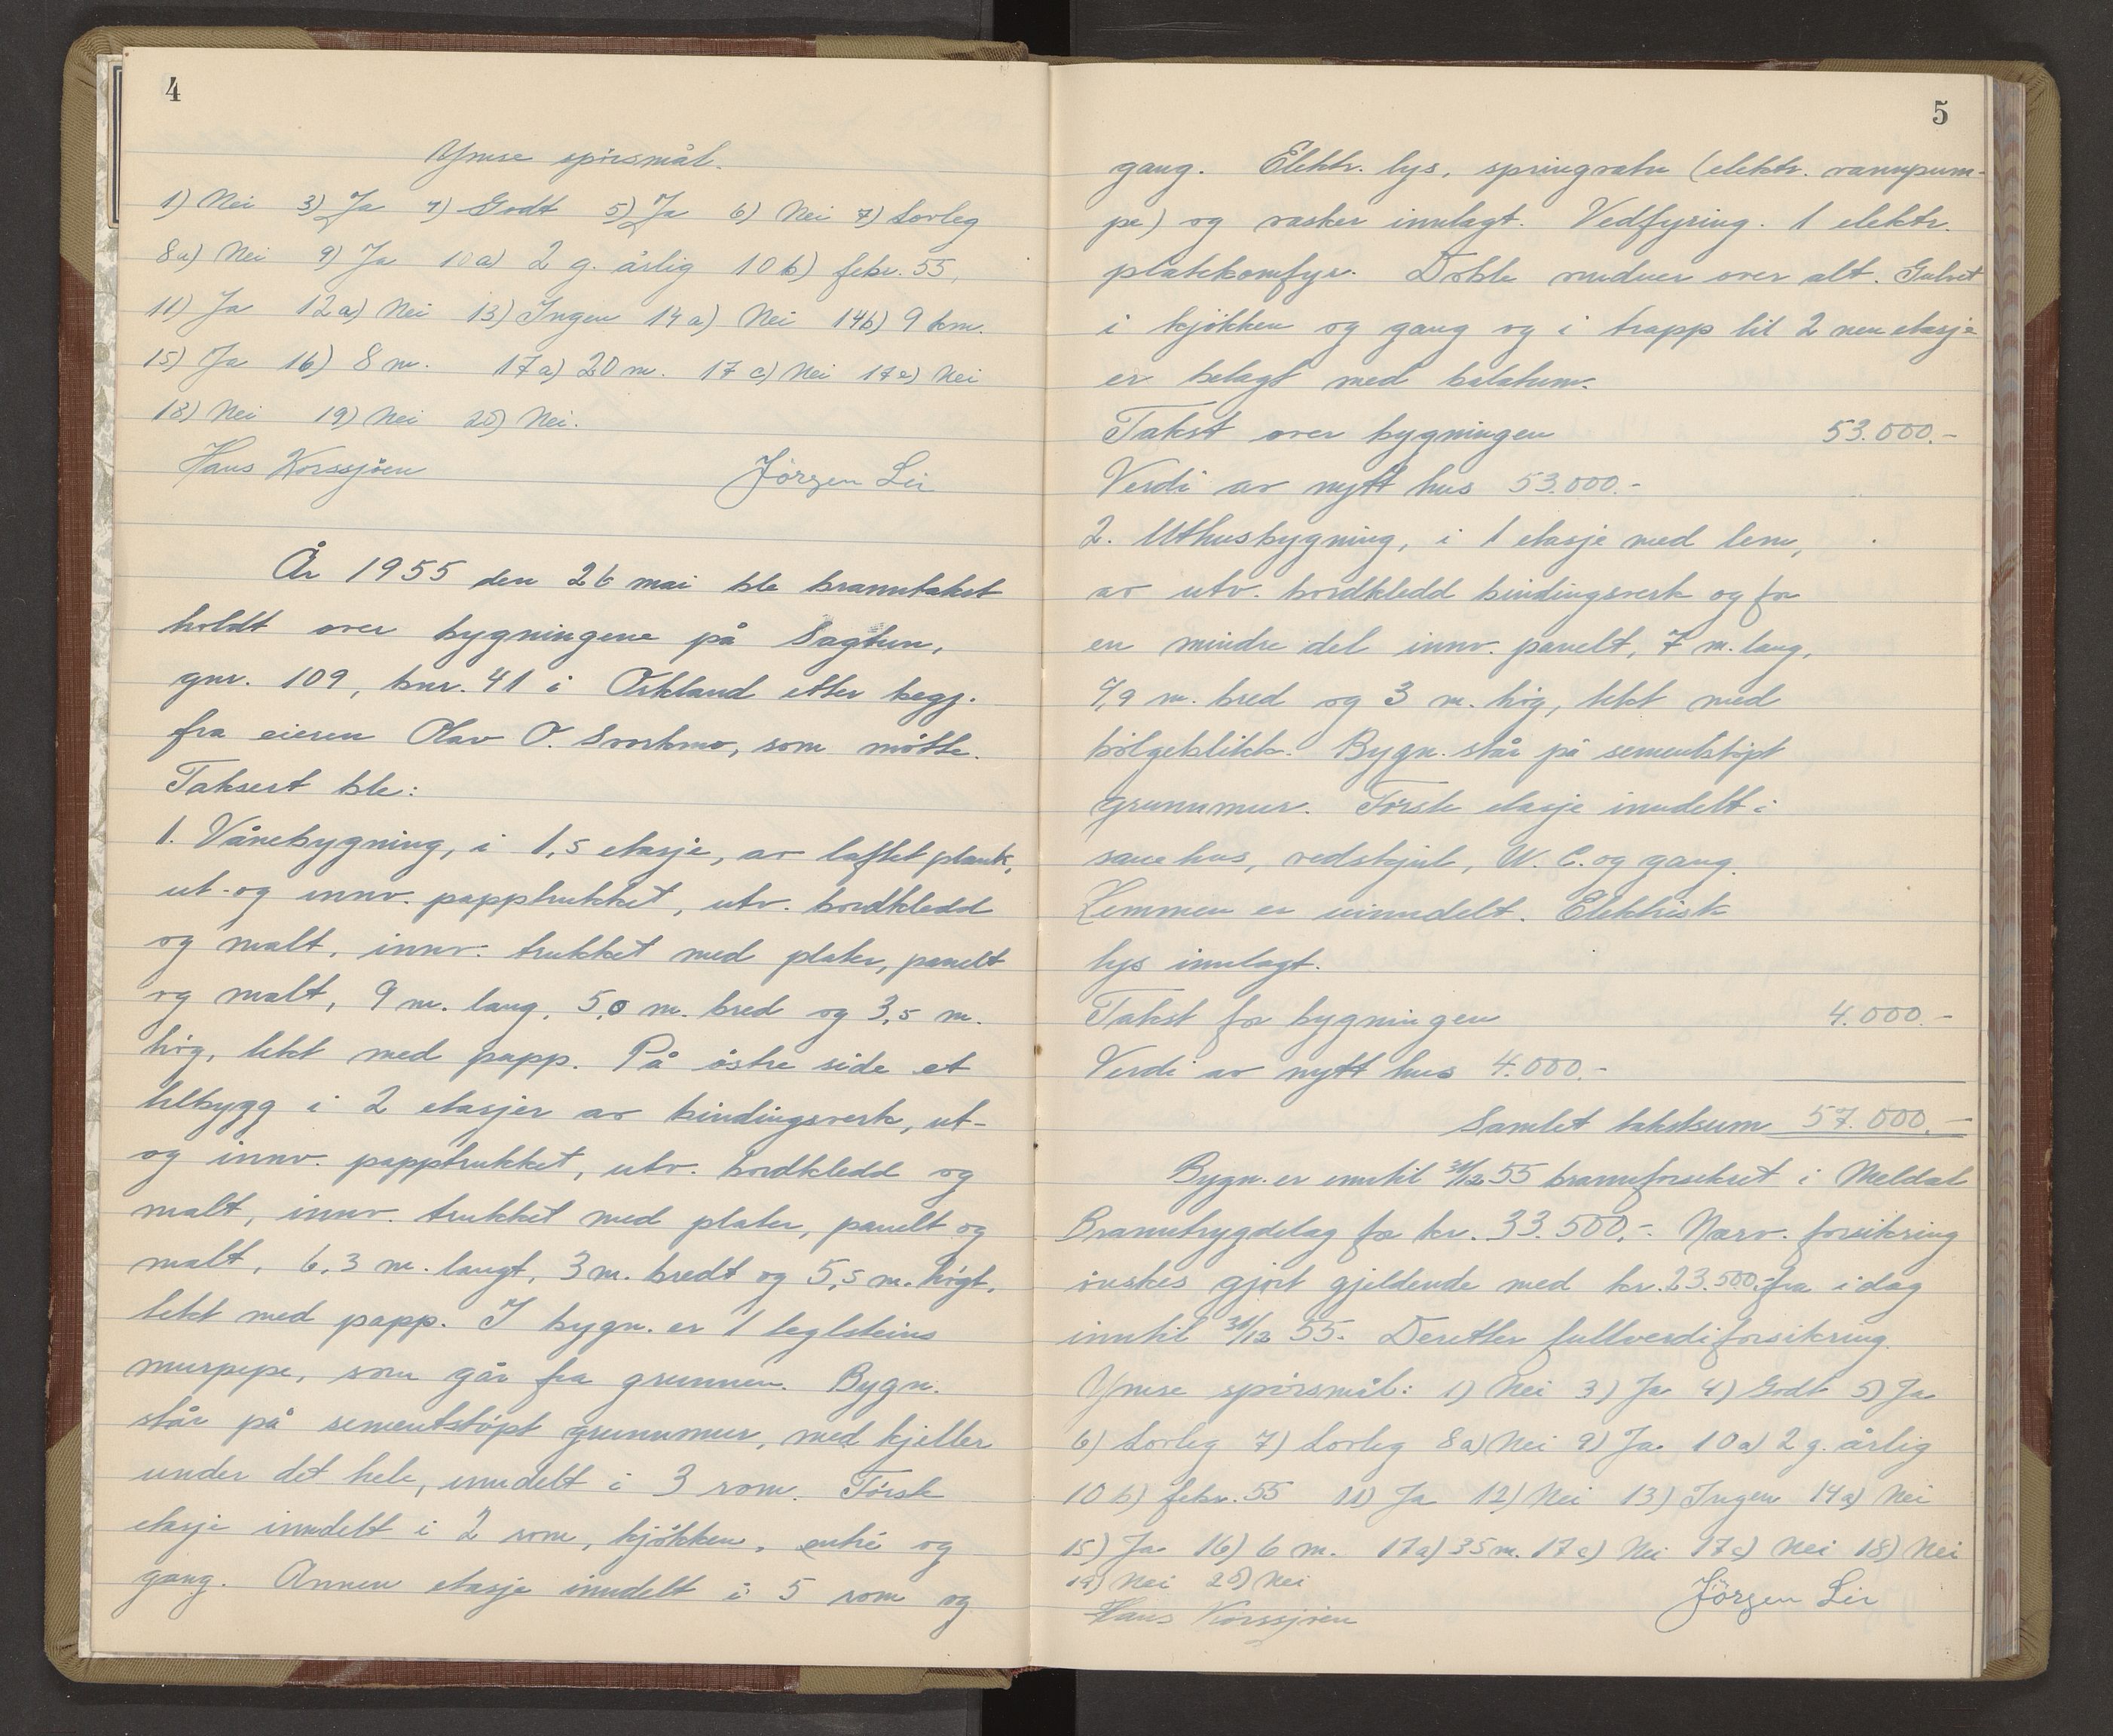 4
Ymse spørsmål.
1) Nei 3) Ja 4) Godt 5) Ja 6) Nei 7) Lovleg
8a) Nei 9) Ja 10a) 2 g. årlig 10 b) febr. 55,
11) Ja 12a) Nei 13) Ingen 14a) Nei 14b) 9 km.
15) Ja 16) 8 m. 17a) 20 m. 17 c) Nei 17e) Nei
18) Nei 19) Nei 20) Nei.
Hans Korssjøen Jörgen Li
År 1955 den 26 mai ble branntakst
holdt over bygningene på Sagtun,
gnr. 109, bnr. 41 i Orkland etter begj.
fra eieren Olav O. Svorkmo, som møtte.
Taksert ble:
1. Vånebygning, i 1,5 etasje, av laftet plank,
ut- og innv. papptrukket, utv. bordkledd
og malt, innv. trukket med plater, panelt
og malt, 9 m. lang, 5,0 m. bred og 3,5 m.
høg, tekt med papp. På østre side et
tilbygg i 2 etasjer av bindingsverk, ut-
og innv. papptrukket, utv. bordkledd og
malt, innv. trukket med plater, panelt og
malt, 6,3 m. langt, 3 m. bredt og 5,5 m. høgt,
tekt med papp. I bygn. er 1 teglsteins
murpipe, som går fra grunnen. Bygn.
står på sementstøpt grunnmur, med kjeller
under det hele, inndelt i 3 rom. Første
etasje inndelt i 2 rom, kjøkken, entré og
gang. Annen etasje inndelt i 5 rom og
5
gang. Elektr. lys, springvatn (elektr. vannpum-
pe) og vasker innlagt. Vedfyring. 1 elektr.
platekomfyr. Doble vinduer over alt. Gulvet
i kjøkken og gang og i trapp til 2 nen etasje
er belagt med balatum.
Takst over bygningen 53.000.-
Verdi av nytt hus 53.000.-
2. Uthusbygning, i 1 etasje med lem,
av utv. bordkledd bindingsverk og for
en mindre del innv. panelt, 7 m. lang,
4,9 m. bred og 3 m. høg, tekt med
bølgeblikk. Bygn. står på sementstøpt
grunnmur. Første etasje inndelt i
sauehus, vedskjul, W. C. og gang.
Lemmen er uinndelt. Elektrisk
lys innlagt.
Takst for bygningen 4.000.-
Verdi av nytt hus 4.000.-
Samlet takstsum 57.000.-
Bygn. er inntil 31/12 55 brannforsikret i Meldal
Branntrygdelag for kr. 33.500,- Nærv. forsikring
ønskes gjort gjeldende med kr. 23.500,- fra i dag
inntil 31/12 55. Deretter fullverdiforsikring.
Ymse spørsmål: 1) Nei 3) Ja 4) Godt 5) Ja
6) Lovleg 7) Lovleg 8a) Nei 9) Ja 10a) 2 g. årlig
10 b) febr. 55 11) Ja 12) Nei 13) Ingen 14a) Nei
15) Ja 16) 6 m. 17a) 35 m. 17c) Nei 17e) Nei 18) Nei
19) Nei 20) Nei
Hans Korssjøen Jörgen Li